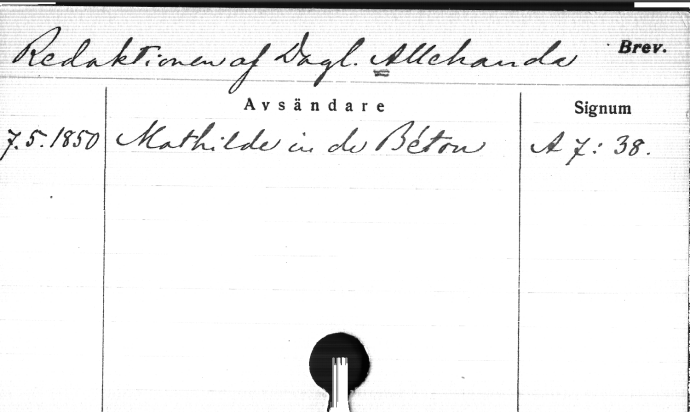 Redaktionen af Dagl. Allehanda Brev.
Avsändare Signum
7.5.1850 Mathilde in de Béton A 7: 38.